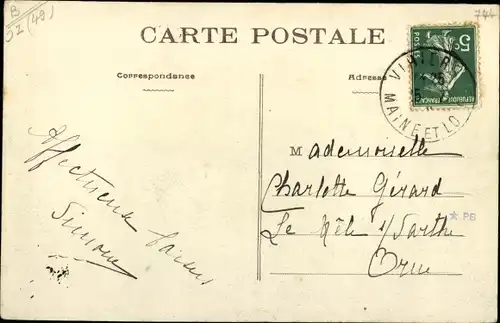 B
52 (49)
744
CARTE POSTALE
Correspondance
Adresse
5c
POSTES
REPUBLIQUE FRANÇAISE
MAINE ET LO
Mademoiselle
Charlotte Gérard
Le Mêle s/Sarthe
Orne
Affectueux baisers
Simone
★ PB